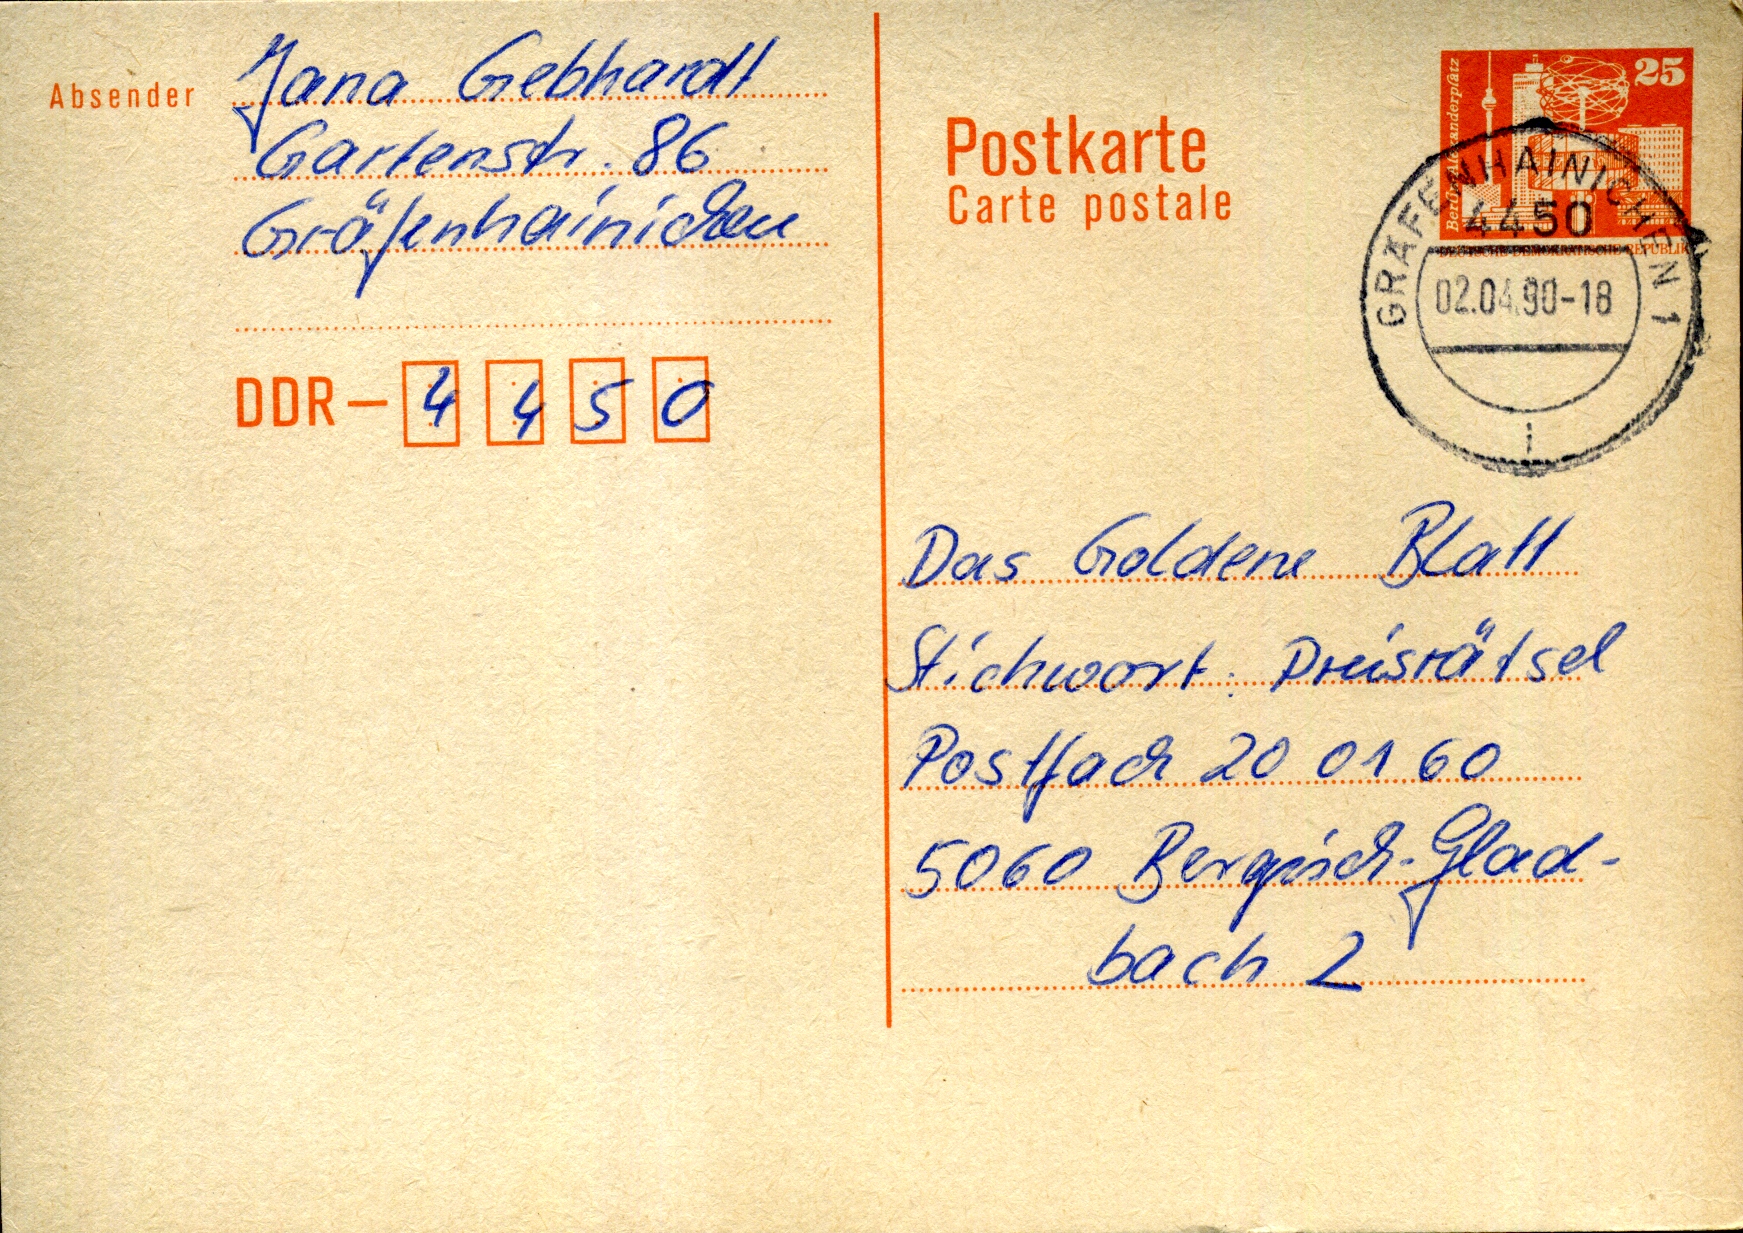 Absender Jana Gebhardt
Gartenstr. 86
Gräfenhainichen
DDR – 4 4 5 0
Postkarte
Carte postale
25
Berlin, Alexanderplatz
DEUTSCHE DEMOKRATISCHE REPUBLIK
GRÄFENHAINICHEN 1
4450
02.04.90-18
i
Das Goldene Blatt
Stichwort: Preisrätsel
Postfach 20 01 60
5060 Bergisch-Glad-
bach 2